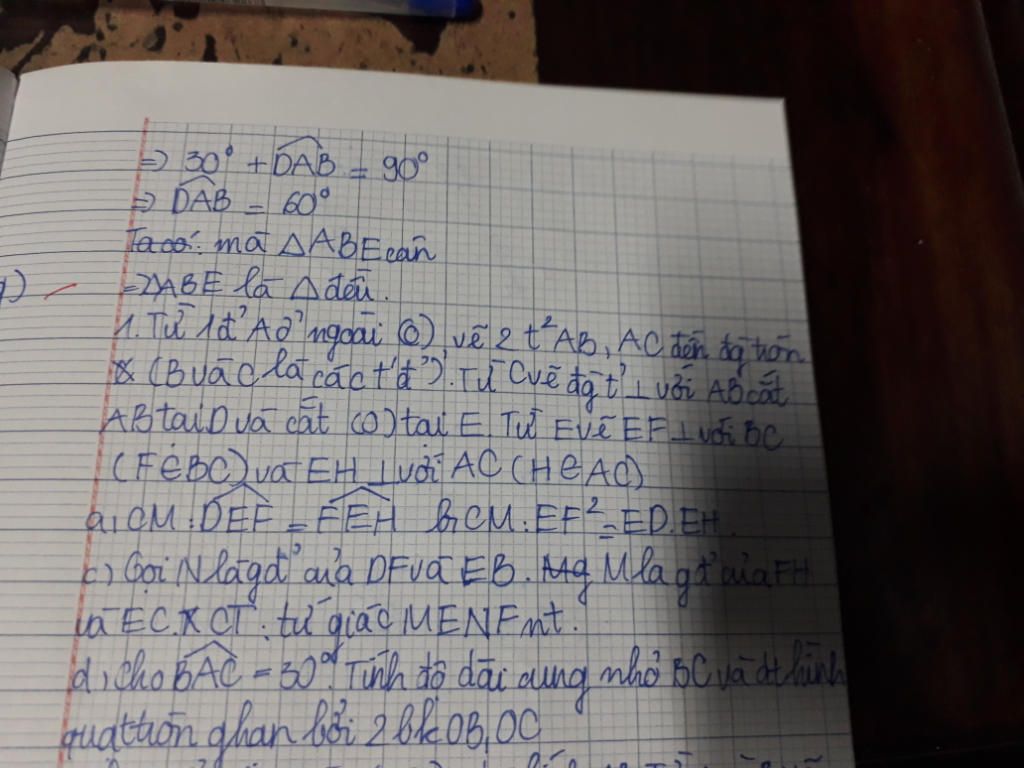 ⇒ 30° + DAB = 90°
⇒ DAB = 60°
Ta có: mà △ABE cân
⇒ △ABE là △ đều.
1. Từ 1 đ' A ở ngoài (O) vẽ 2 t² AB, AC đến đg tròn
(B và C là các t'đ'). Từ C vẽ đg t' ⊥ với AB cắt
AB tại D và cắt (O) tại E. Từ E vẽ EF ⊥ với BC
(F ∈ BC) và EH ⊥ với AC (H ∈ AC)
a, CM: DEF = FEH b, CM: EF² = ED.EH.
c) Gọi N là gđ' của DF và EB. M là gđ' của FH
và EC. CT: tứ giác MENF nt.
d, Cho BAC = 30°. Tính độ dài cung nhỏ BC và dt hình
quạt tròn ghạn bởi 2 bk OB, OC